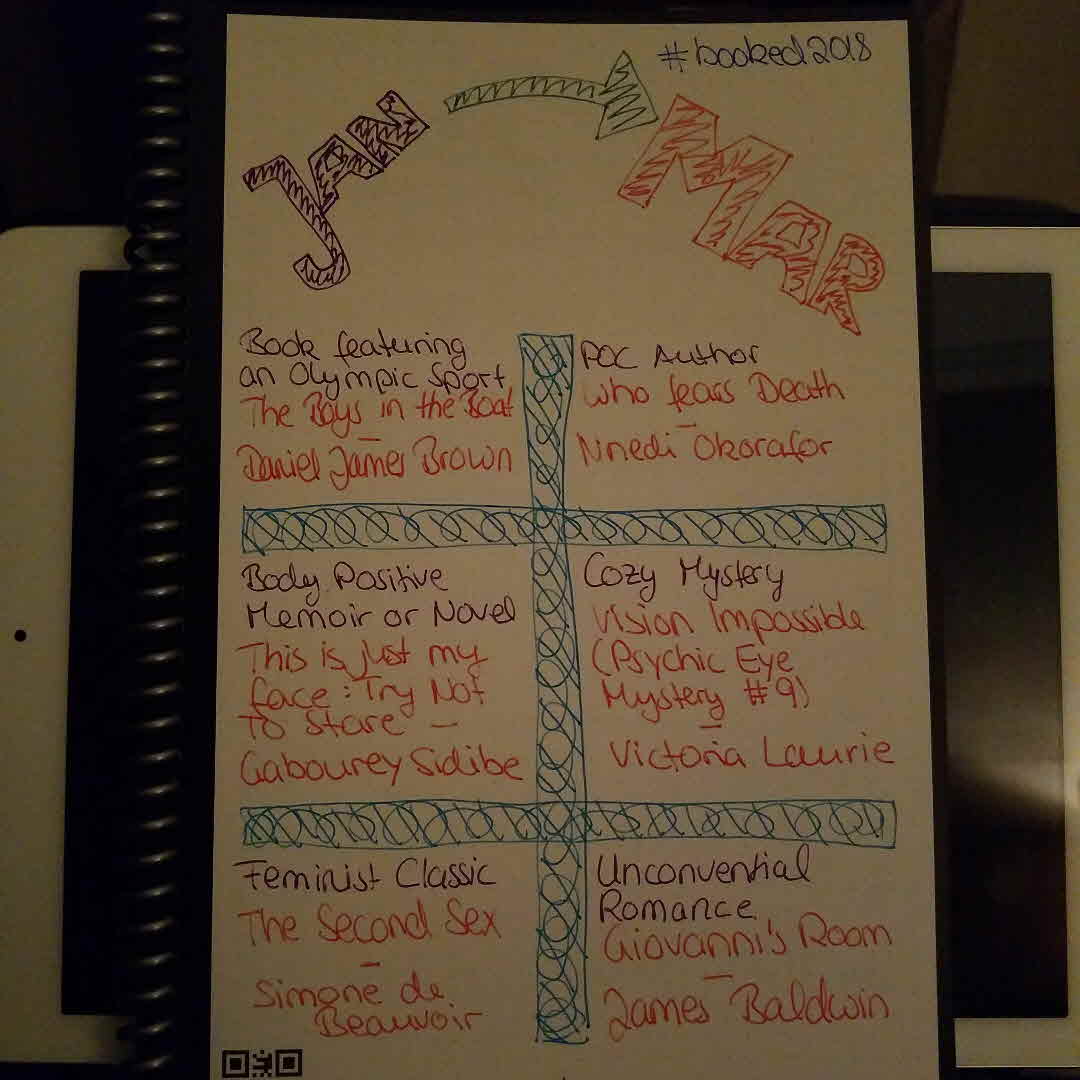 #booked2018
JAN
MAR
Book featuring
an Olympic Sport
The Boys in the Boat
–
Daniel James Brown
POC Author
Who fears Death
–
Nnedi Okorafor
Body Positive
Memoir or Novel
This is just my
face: Try Not
To Stare –
Gabourey Sidibe
Cozy Mystery
Vision Impossible
(Psychic Eye
Mystery #9)
–
Victoria Laurie
Feminist Classic
The Second Sex
–
Simone de
Beauvoir
Unconvential
Romance
Giovanni's Room
–
James Baldwin